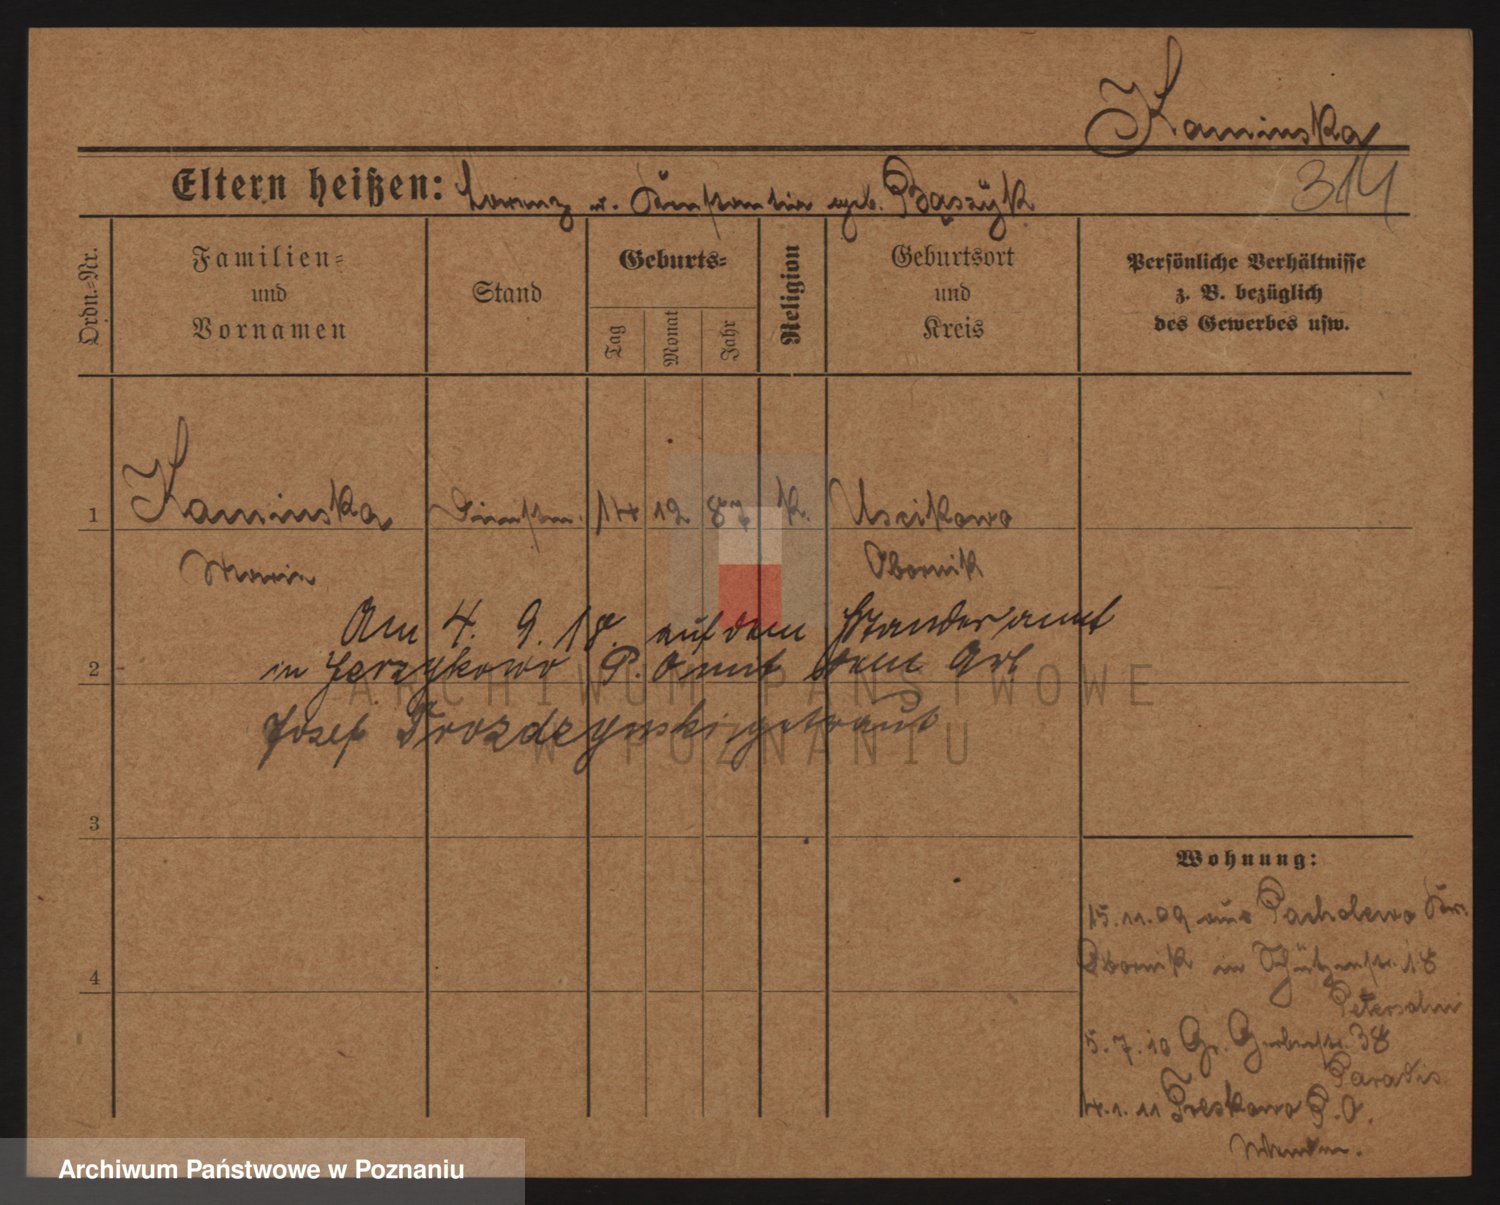 Kaminska
314
Eltern heißen: Lorenz u. Konstantia geb. Bączÿk
Ordn.-Nr.
Familien- und Vornamen
Stand
Geburts-
Tag
Monat
Jahr
Religion
Geburtsort und Kreis
Persönliche Verhältnisse
z. B. bezüglich
des Gewerbes usw.
1 Kaminska 14 12 87 k. Uscikowo
Maria Obornik
Am 4. 9. 18. auf dem Standesamt
2
in Jerzykowo P. O mit dem Arb
Josef Drozdzynski getraut
3
Wohnung:
15.11.09 aus Pacholewo Kr.
Obornik in Schützenstr. 18
4
Petersohn
5.7.10 Gr. Gerberstr. 38
Paradis
4.1.11 Treskowo P.O.
ARCHIWUM PAŃSTWOWE
W POZNANIU
Archiwum Państwowe w Poznaniu